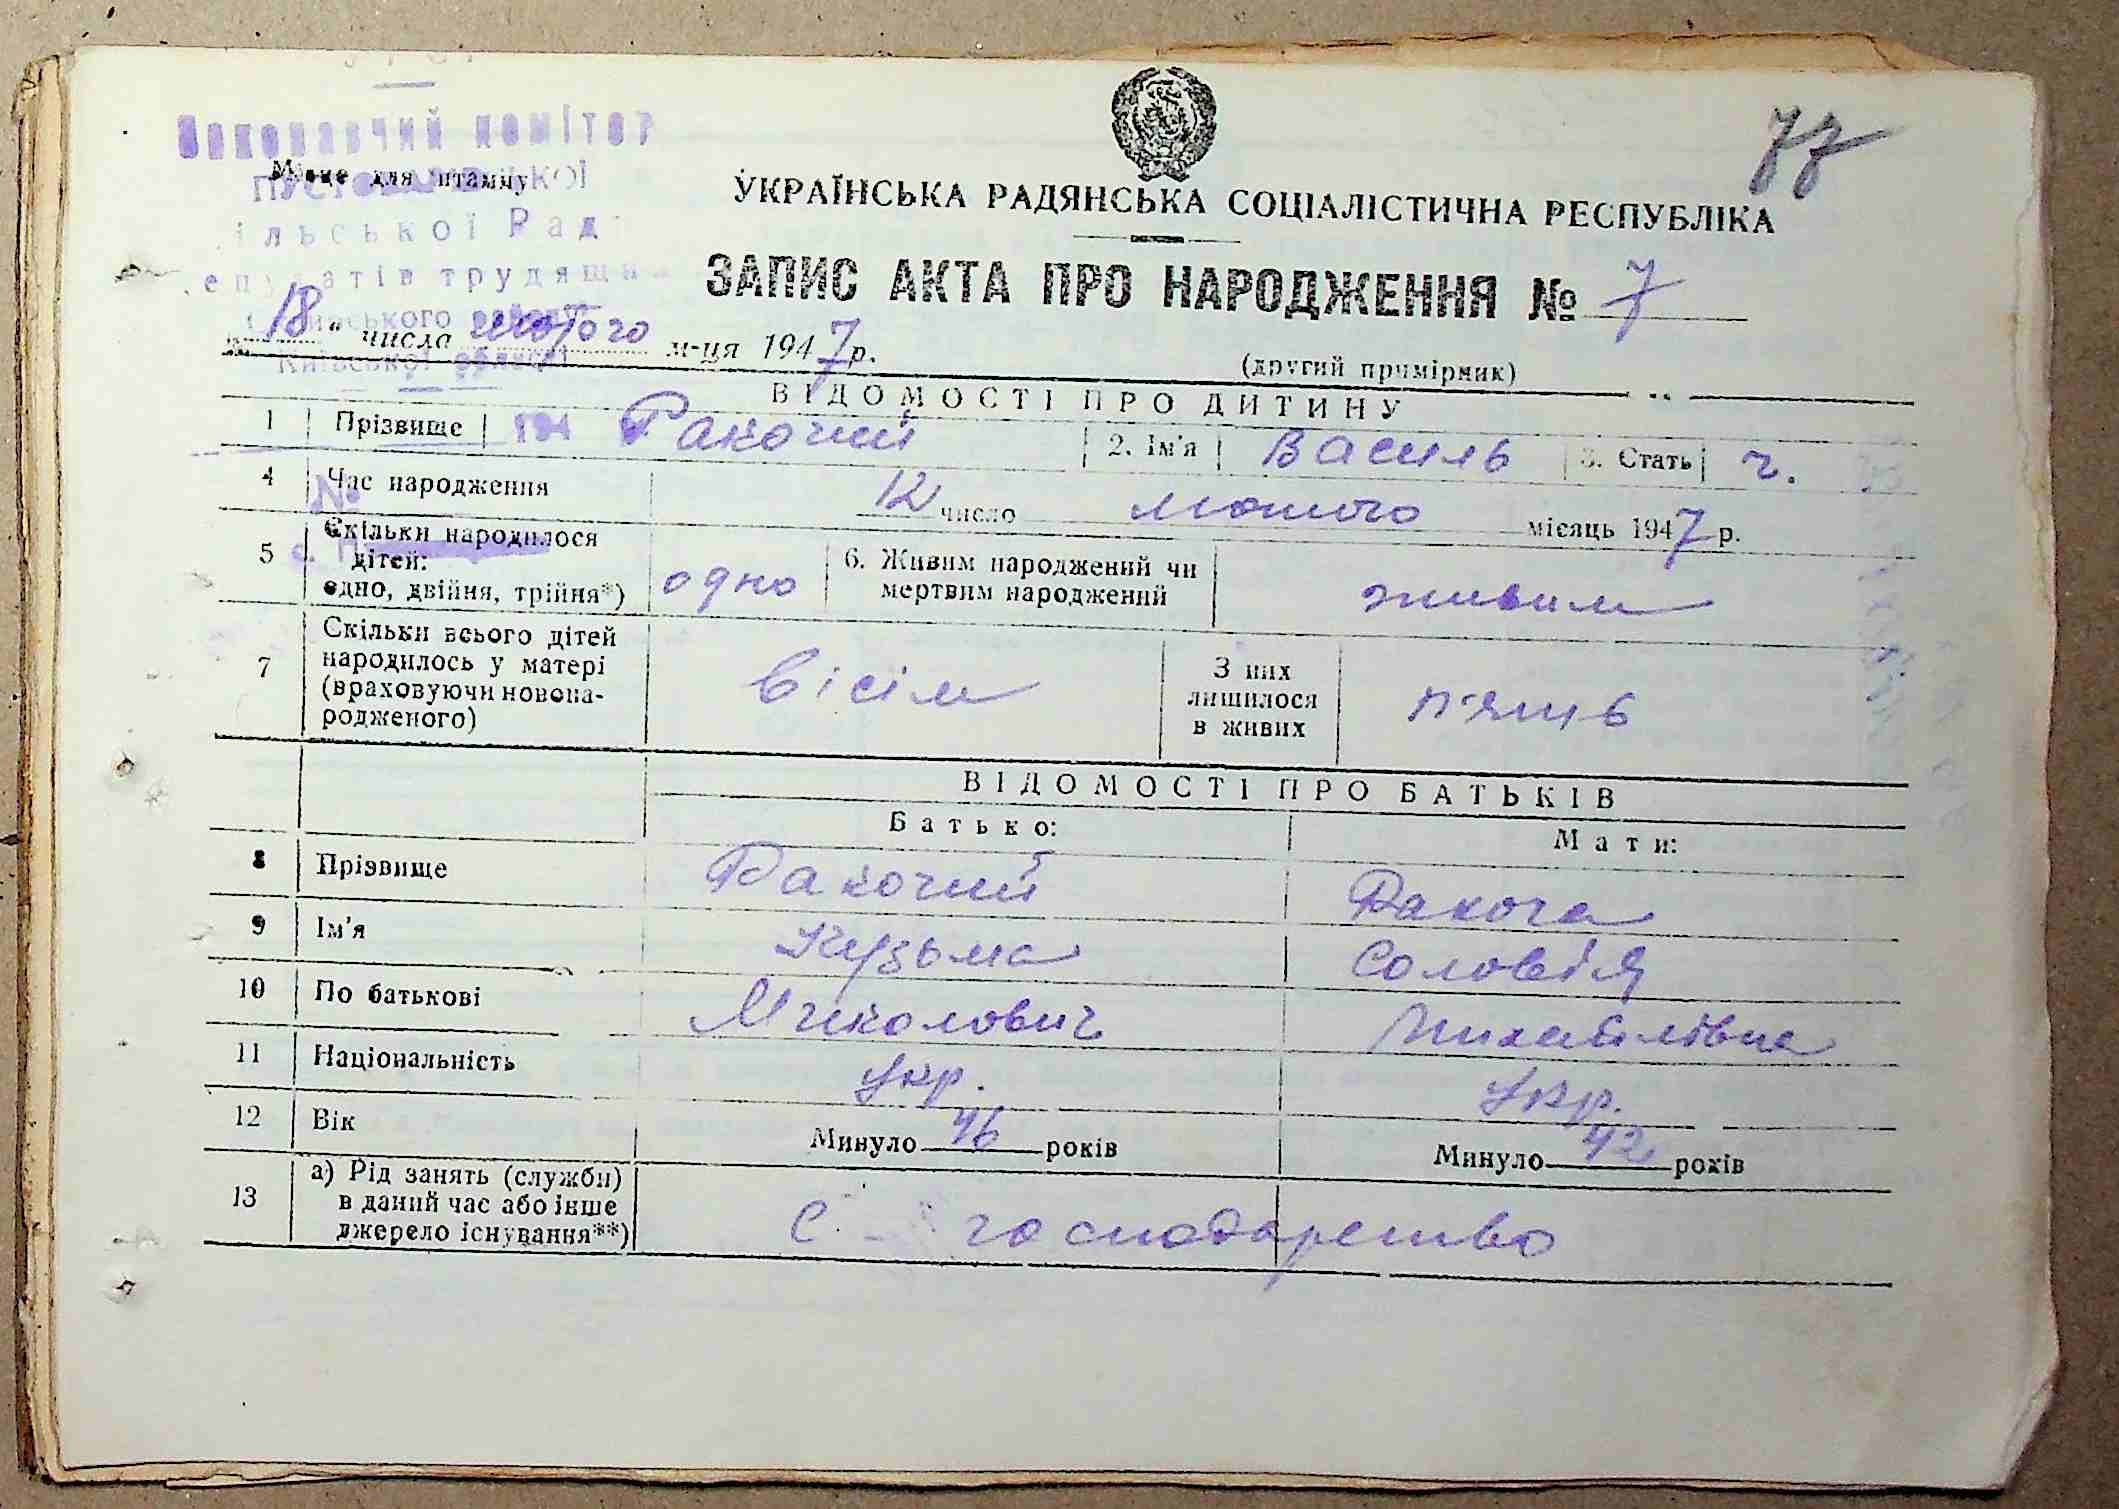 УРСР
Виконавчий комітет
Місце для штампу
ільської Рад
епутатів трудящи
Київської області
77
УКРАЇНСЬКА РАДЯНСЬКА СОЦІАЛІСТИЧНА РЕСПУБЛІКА
ЗАПИС АКТА ПРО НАРОДЖЕННЯ № 7
"18" числа лютого м-ця 1947 р.
(другий примірник)
ВІДОМОСТІ ПРО ДИТИНУ
1 Прізвище 194 Ракочий 2. Ім'я Василь 3. Стать ч.
4 Час народження 12 число лютого місяць 1947 р.
№
5 Скільки народилося дітей: одно, двійня, трійня*) одно 6. Живим народжений чи мертвим народжений живим
7 Скільки всього дітей народилось у матері (враховуючи новона-родженого) вісім З них лишилося в живих п'ять
ВІДОМОСТІ ПРО БАТЬКІВ
Батько: Мати:
8 Прізвище Ракочий Ракоча
9 Ім'я Кузьма Соловія
10 По батькові Миколович Михайлівна
11 Національність укр. укр.
12 Вік Минуло 46 років Минуло 42 років
13 а) Рід занять (служби) в даний час або інше джерело існування**) С - господарство